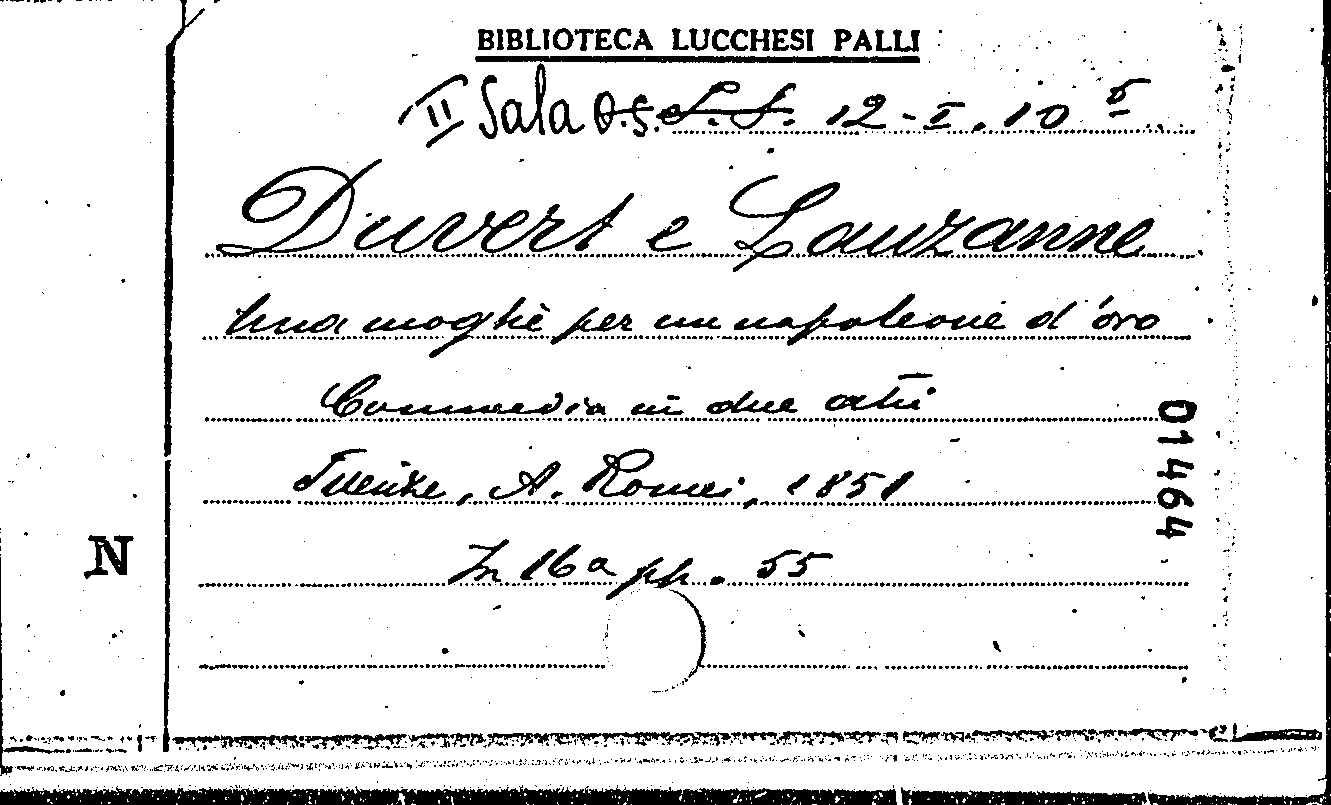 BIBLIOTECA LUCCHESI PALLI
II Sala O.S. L. L. 12-I.10 5
Duvert e Lauzanne
Una moglie per un napoleone d'oro
Commedia in due atti
Firenze, A. Romei, 1851
In 16a pp. 55
01464
N